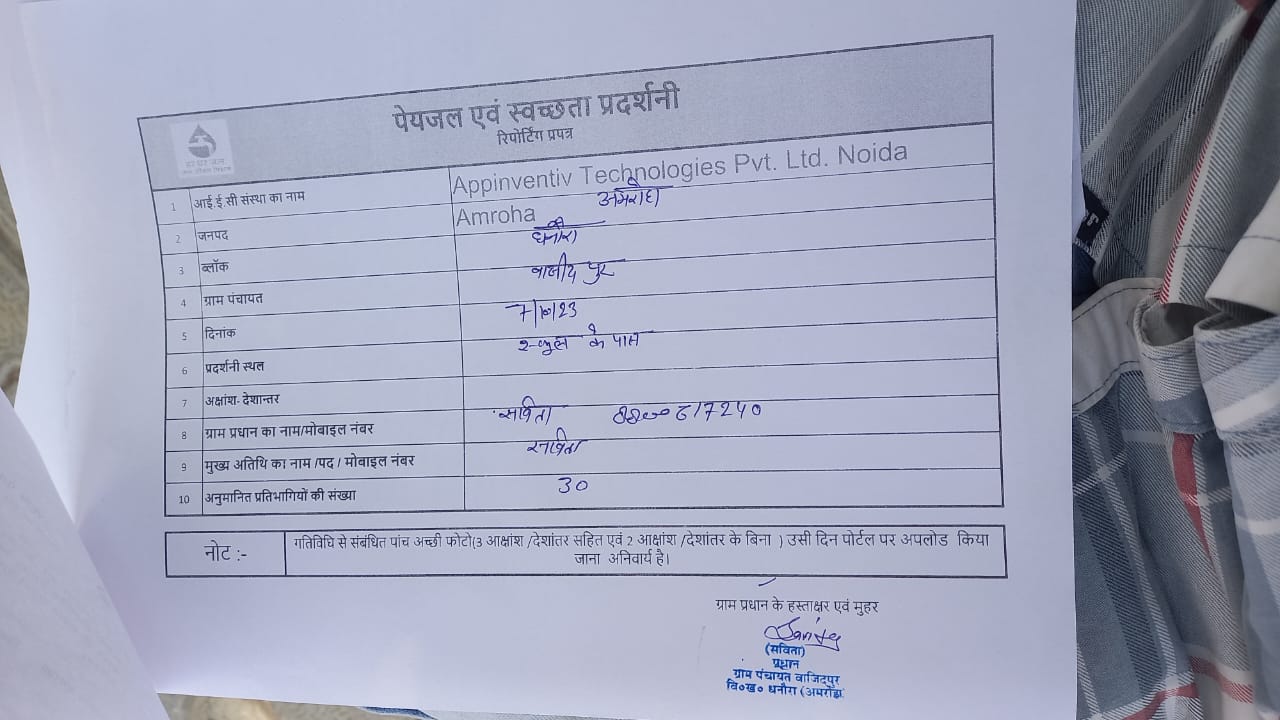 पेयजल एवं स्वच्छता प्रदर्शनी
रिपोर्टिंग प्रपत्र
हर घर जल
1 आई.ई.सी संस्था का नाम Appinventiv Technologies Pvt. Ltd. Noida
2 जनपद Amroha अमरोहा
3 ब्लॉक धनौरा
4 ग्राम पंचायत वाजीदपुर
5 दिनांक 7/10/23
6 प्रदर्शनी स्थल स्कूल के पास
7 अक्षांश- देशान्तर
8 ग्राम प्रधान का नाम/मोबाइल नंबर सविता
9 मुख्य अतिथि का नाम /पद / मोबाइल नंबर सविता
10 अनुमानित प्रतिभागियों की संख्या 30
नोट :- गतिविधि से संबंधित पांच अच्छी फोटो(3 आक्षांश /देशांतर सहित एवं 2 आक्षांश /देशांतर के बिना ) उसी दिन पोर्टल पर अपलोड किया
जाना अनिवार्य है।
ग्राम प्रधान के हस्ताक्षर एवं मुहर
(सविता)
प्रधान
ग्राम पंचायत वाजिदपुर
वि०ख० धनौरा (अमरोहा)